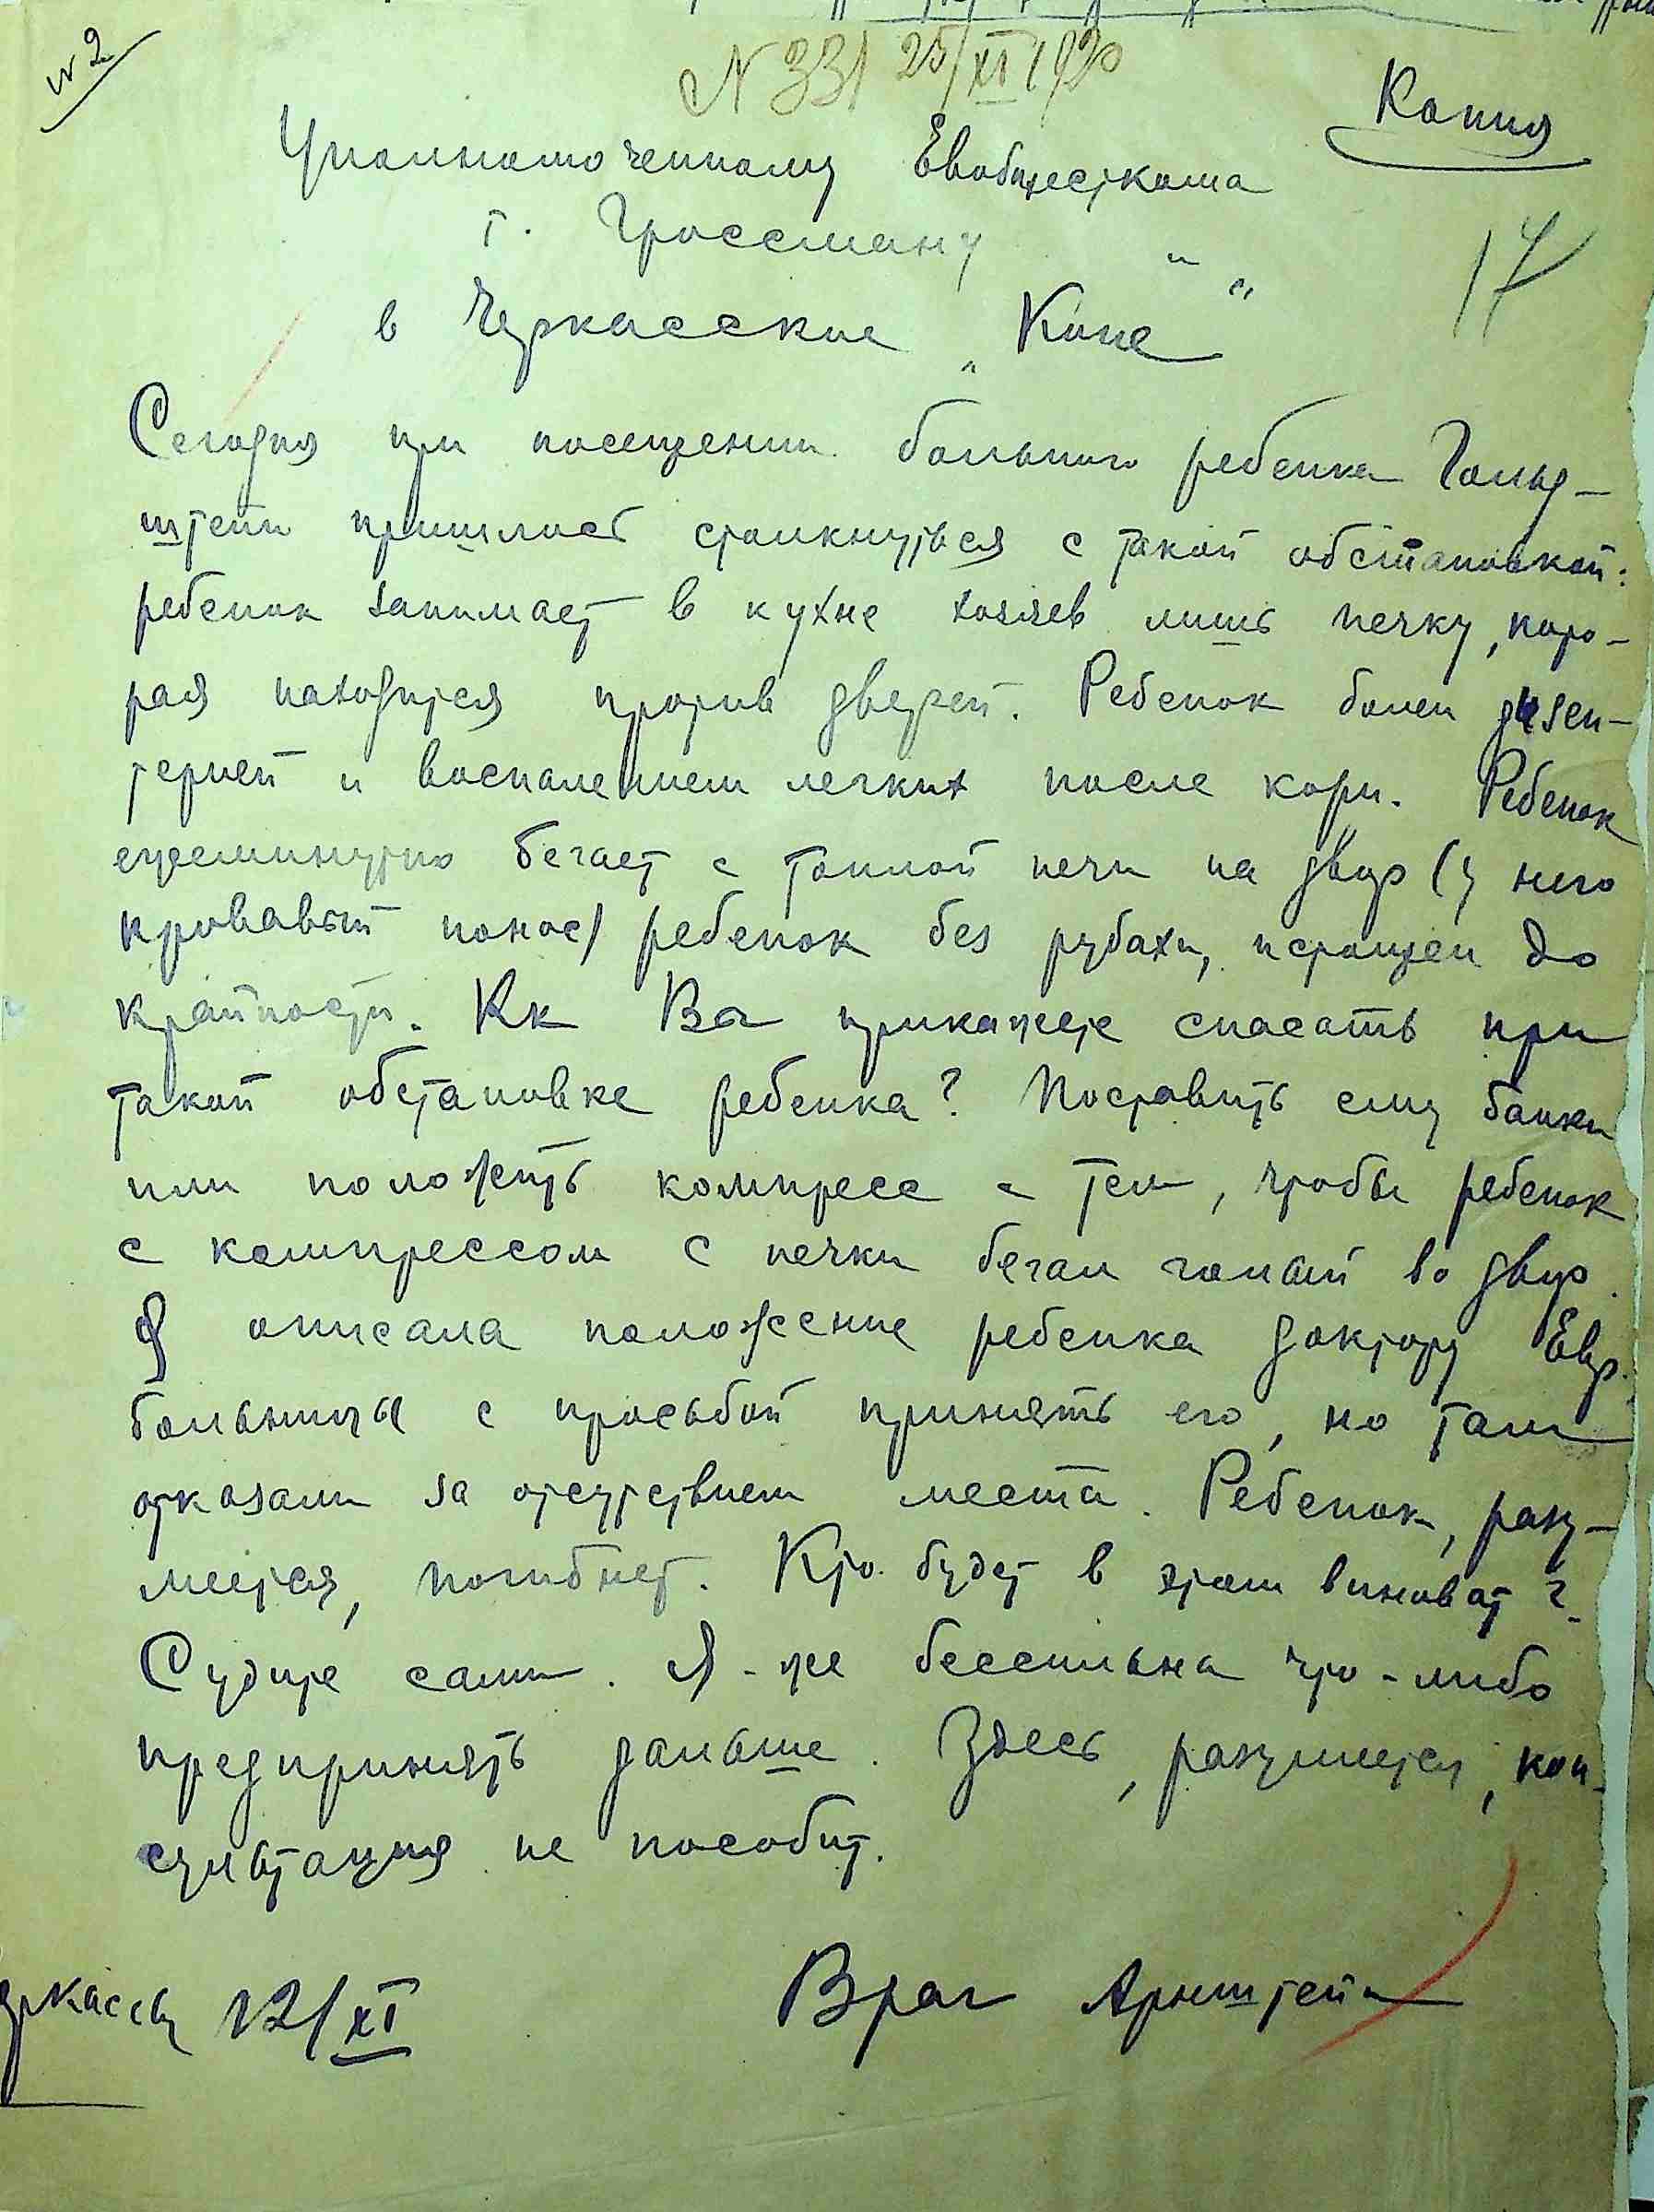 № 2
№ 331 25/XI 1920
Копия
Уполномоченному Евобщесткома
т. Гроссману
17
в Черкасские „Копе“
Сегодня при посещении больного ребенка Гольд-
штейн пришлось столкнуться с такой обстановкой:
ребенок занимает в кухне хозяев лишь печку, кото-
рая находится против дверей. Ребенок болен дизен-
терией и воспалением легких после кори. Ребенок
ежеминутно бегает с теплой печи на двор (у него
кровавый понос) ребенок без рубахи, истощен до
крайности. Кк Ва прикажете спасать при
такой обстановке ребенка? Поставить ему банки
или положить компресс с тем, чтобы ребенок
с компрессом с печки бегал голый во двор.
Я описала положение ребенка доктору Евр.
больницы с просьбой принять его, но там
отказали за отсутствием места. Ребенок, разу-
меется, погибнет. Кто будет в этом виноват?
Судите сами. Я-же бессильна что-либо
предпринять дальше. Здесь, разумеется, кон-
сультация не пособит.
Врач Арнштейн
ркассы 12/XI